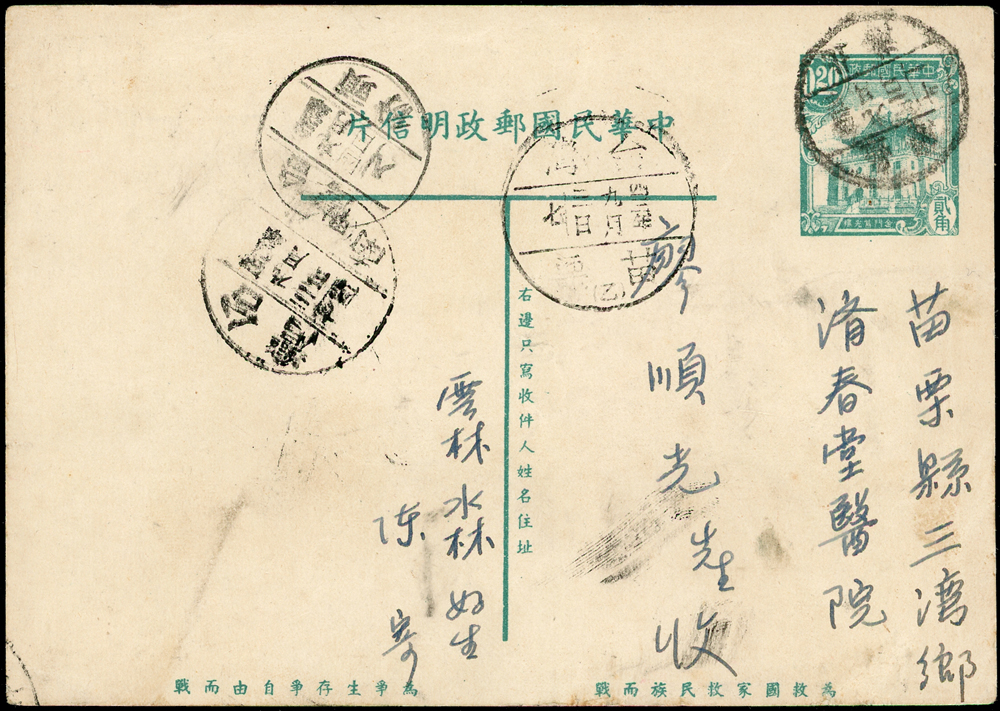 中華民國郵政明信片
中華民國郵政
1.20
貳角
金門莒光樓
苗栗縣三灣鄉
濟春堂醫院
廖順光先生收
右邊只寫收件人姓名住址
雲林水林
好生
陳 寄
台灣
九月
三日
七
苗
(乙)
頭份
為救國家救民族而戰
為爭生存爭自由而戰